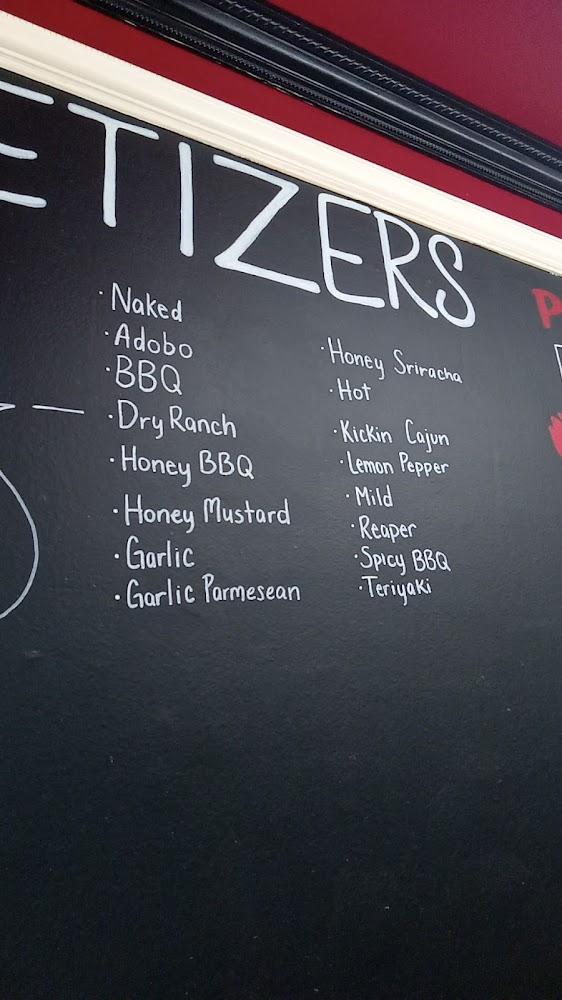 ETIZERS
· Naked
· Adobo
· BBQ
· Dry Ranch
· Honey BBQ
· Honey Mustard
· Garlic
· Garlic Parmesean
· Honey Sriracha
· Hot
· Kickin Cajun
· Lemon Pepper
· Mild
· Reaper
· Spicy BBQ
· Teriyaki
P